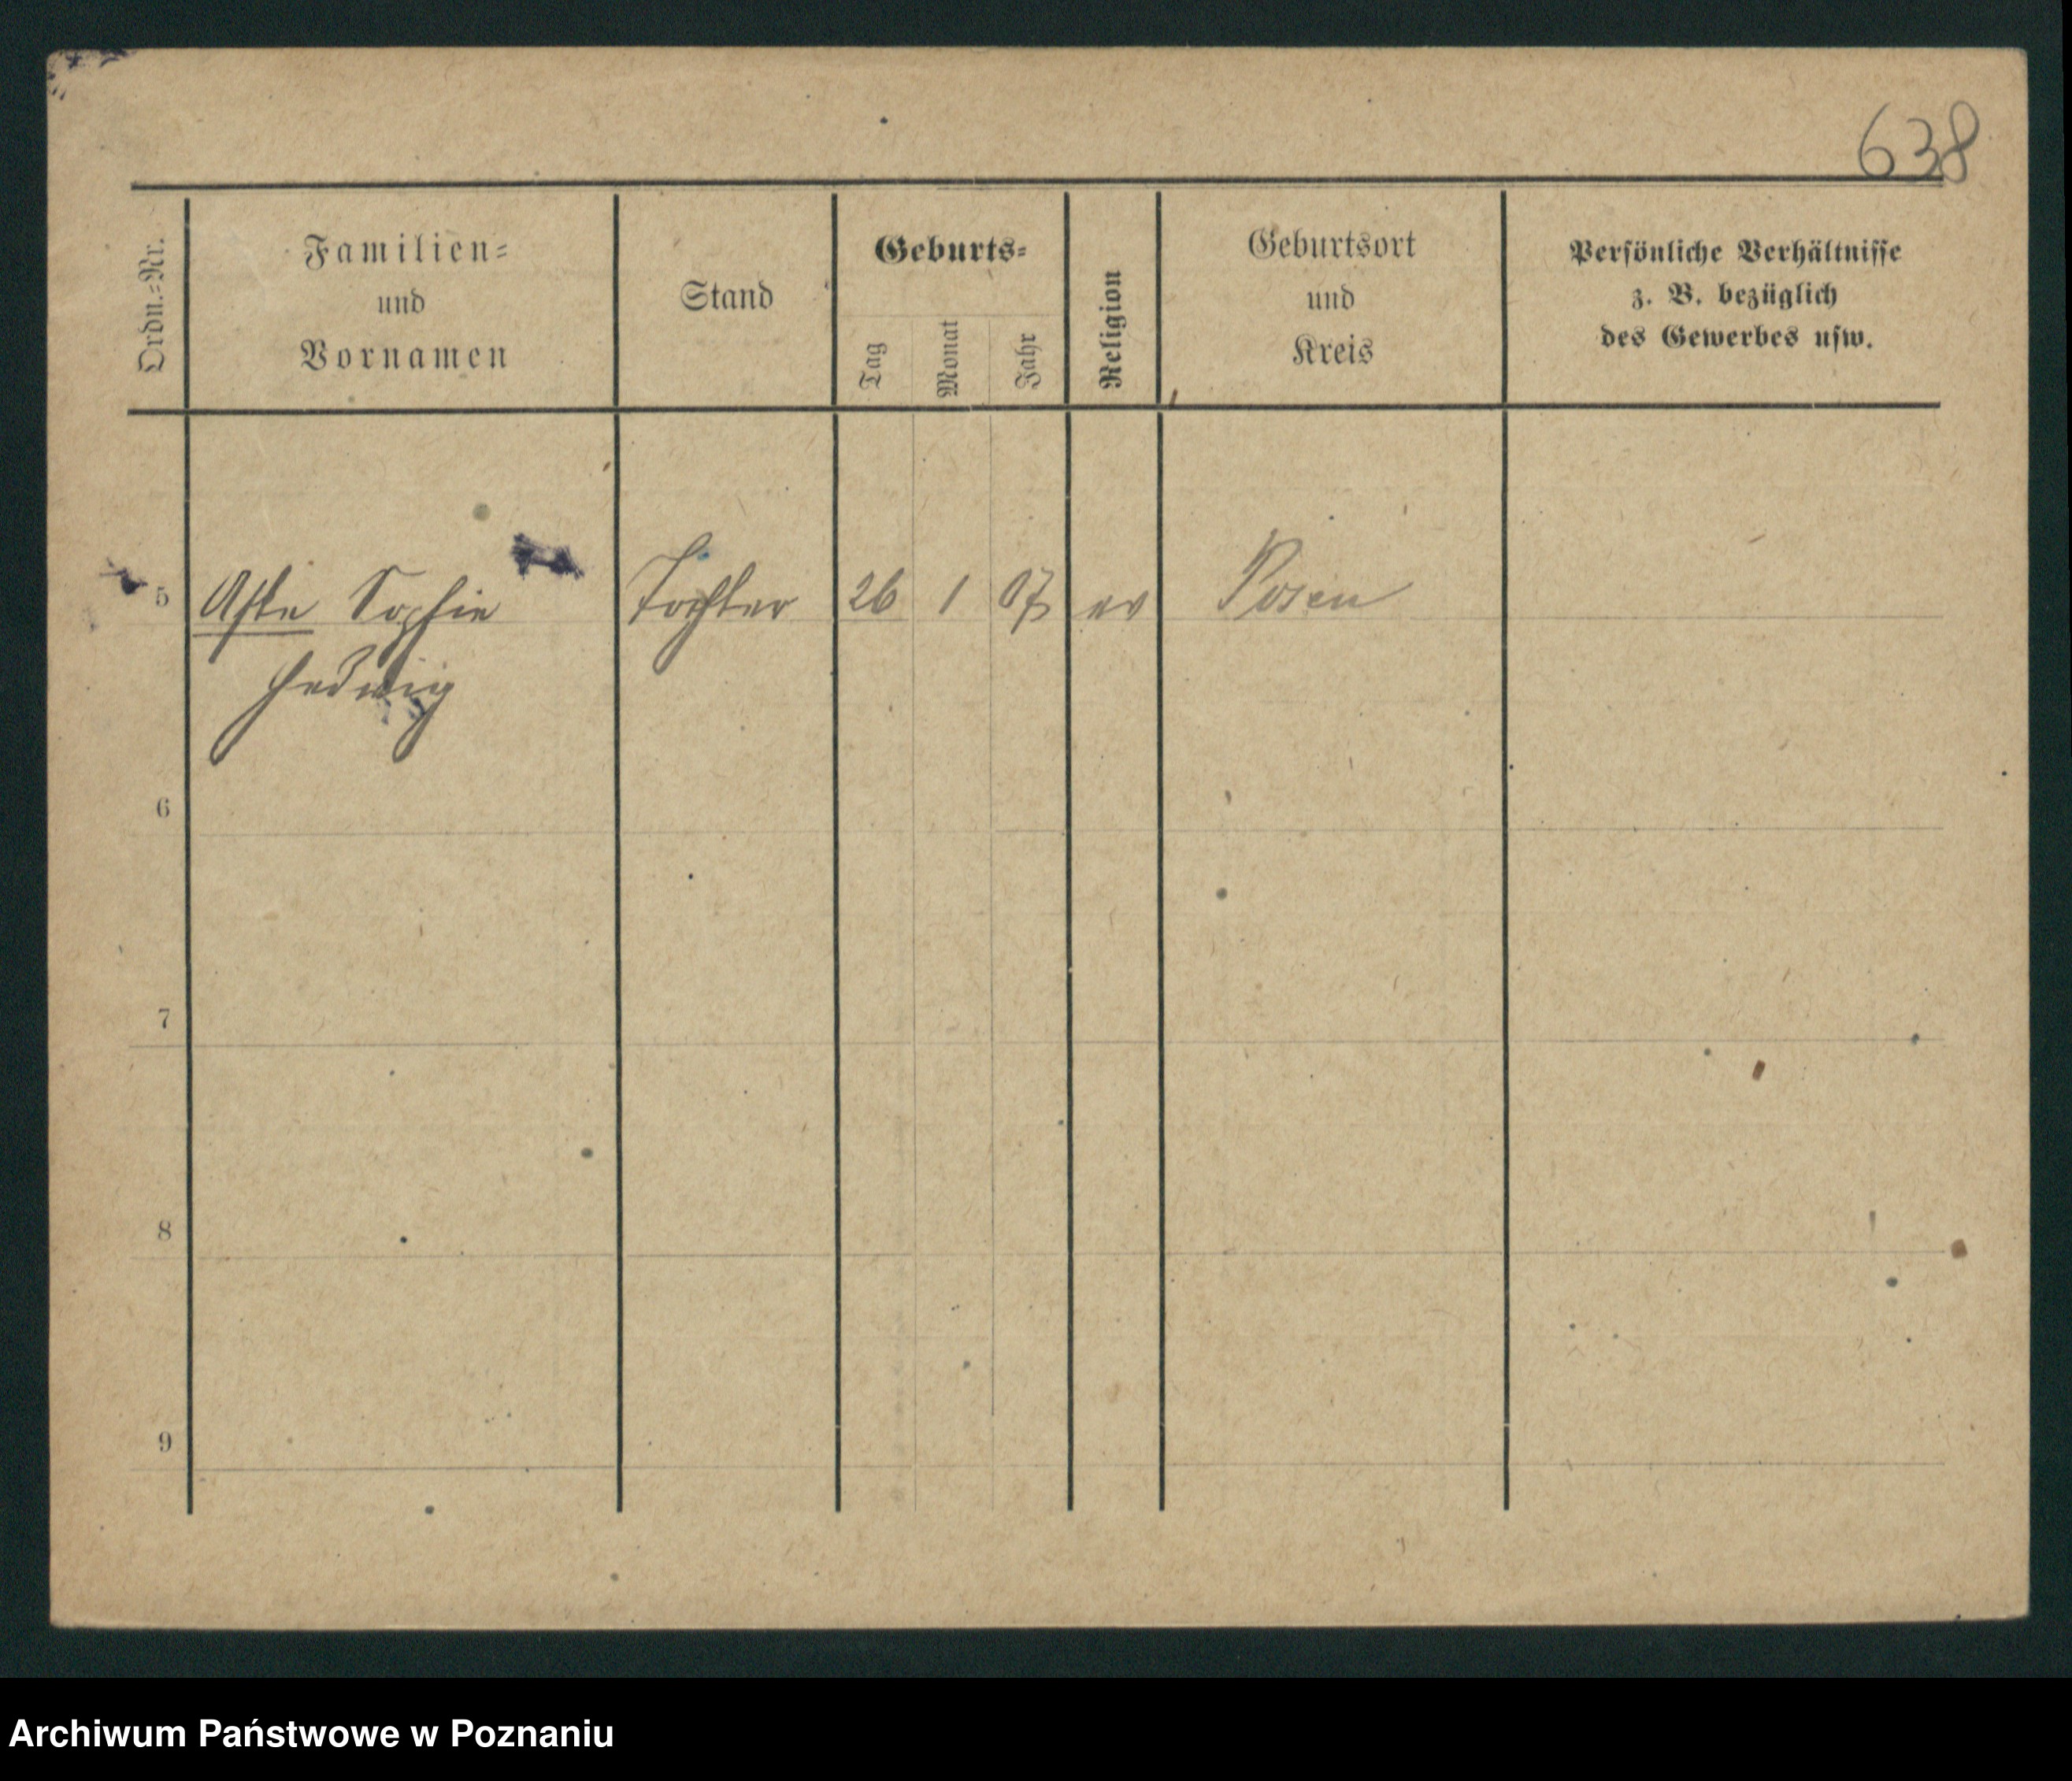 638
Ordn.-Nr.
Familien-
und
Vornamen
Stand
Geburts-
Tag
Monat
Jahr
Religion
Geburtsort
und
Kreis
Persönliche Verhältnisse
z. B. bezüglich
des Gewerbes usw.
5 Sophie Tochter 26 1 07 ev Posen
Hedwig
6
7
8
9
Archiwum Państwowe w Poznaniu